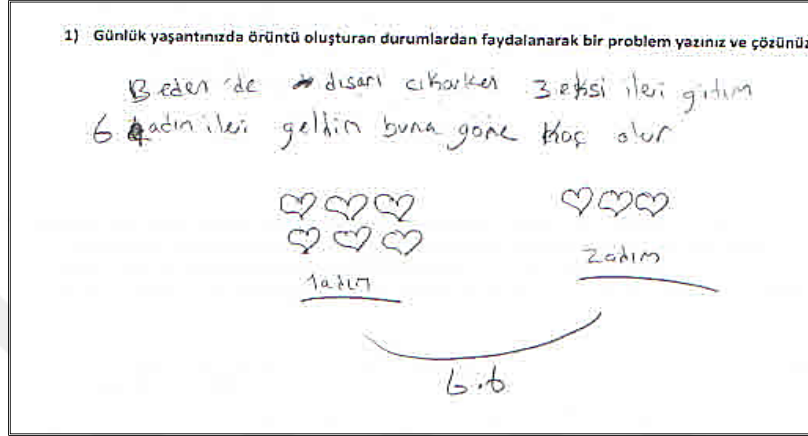 1) Günlük yaşantınızda örüntü oluşturan durumlardan faydalanarak bir problem yazınız ve çözünüz
Beden 'de dısarı cıkarken 3 eksi ileri gitim
6 adın ileri geldin buna göre kaç olur
1adım
2adım